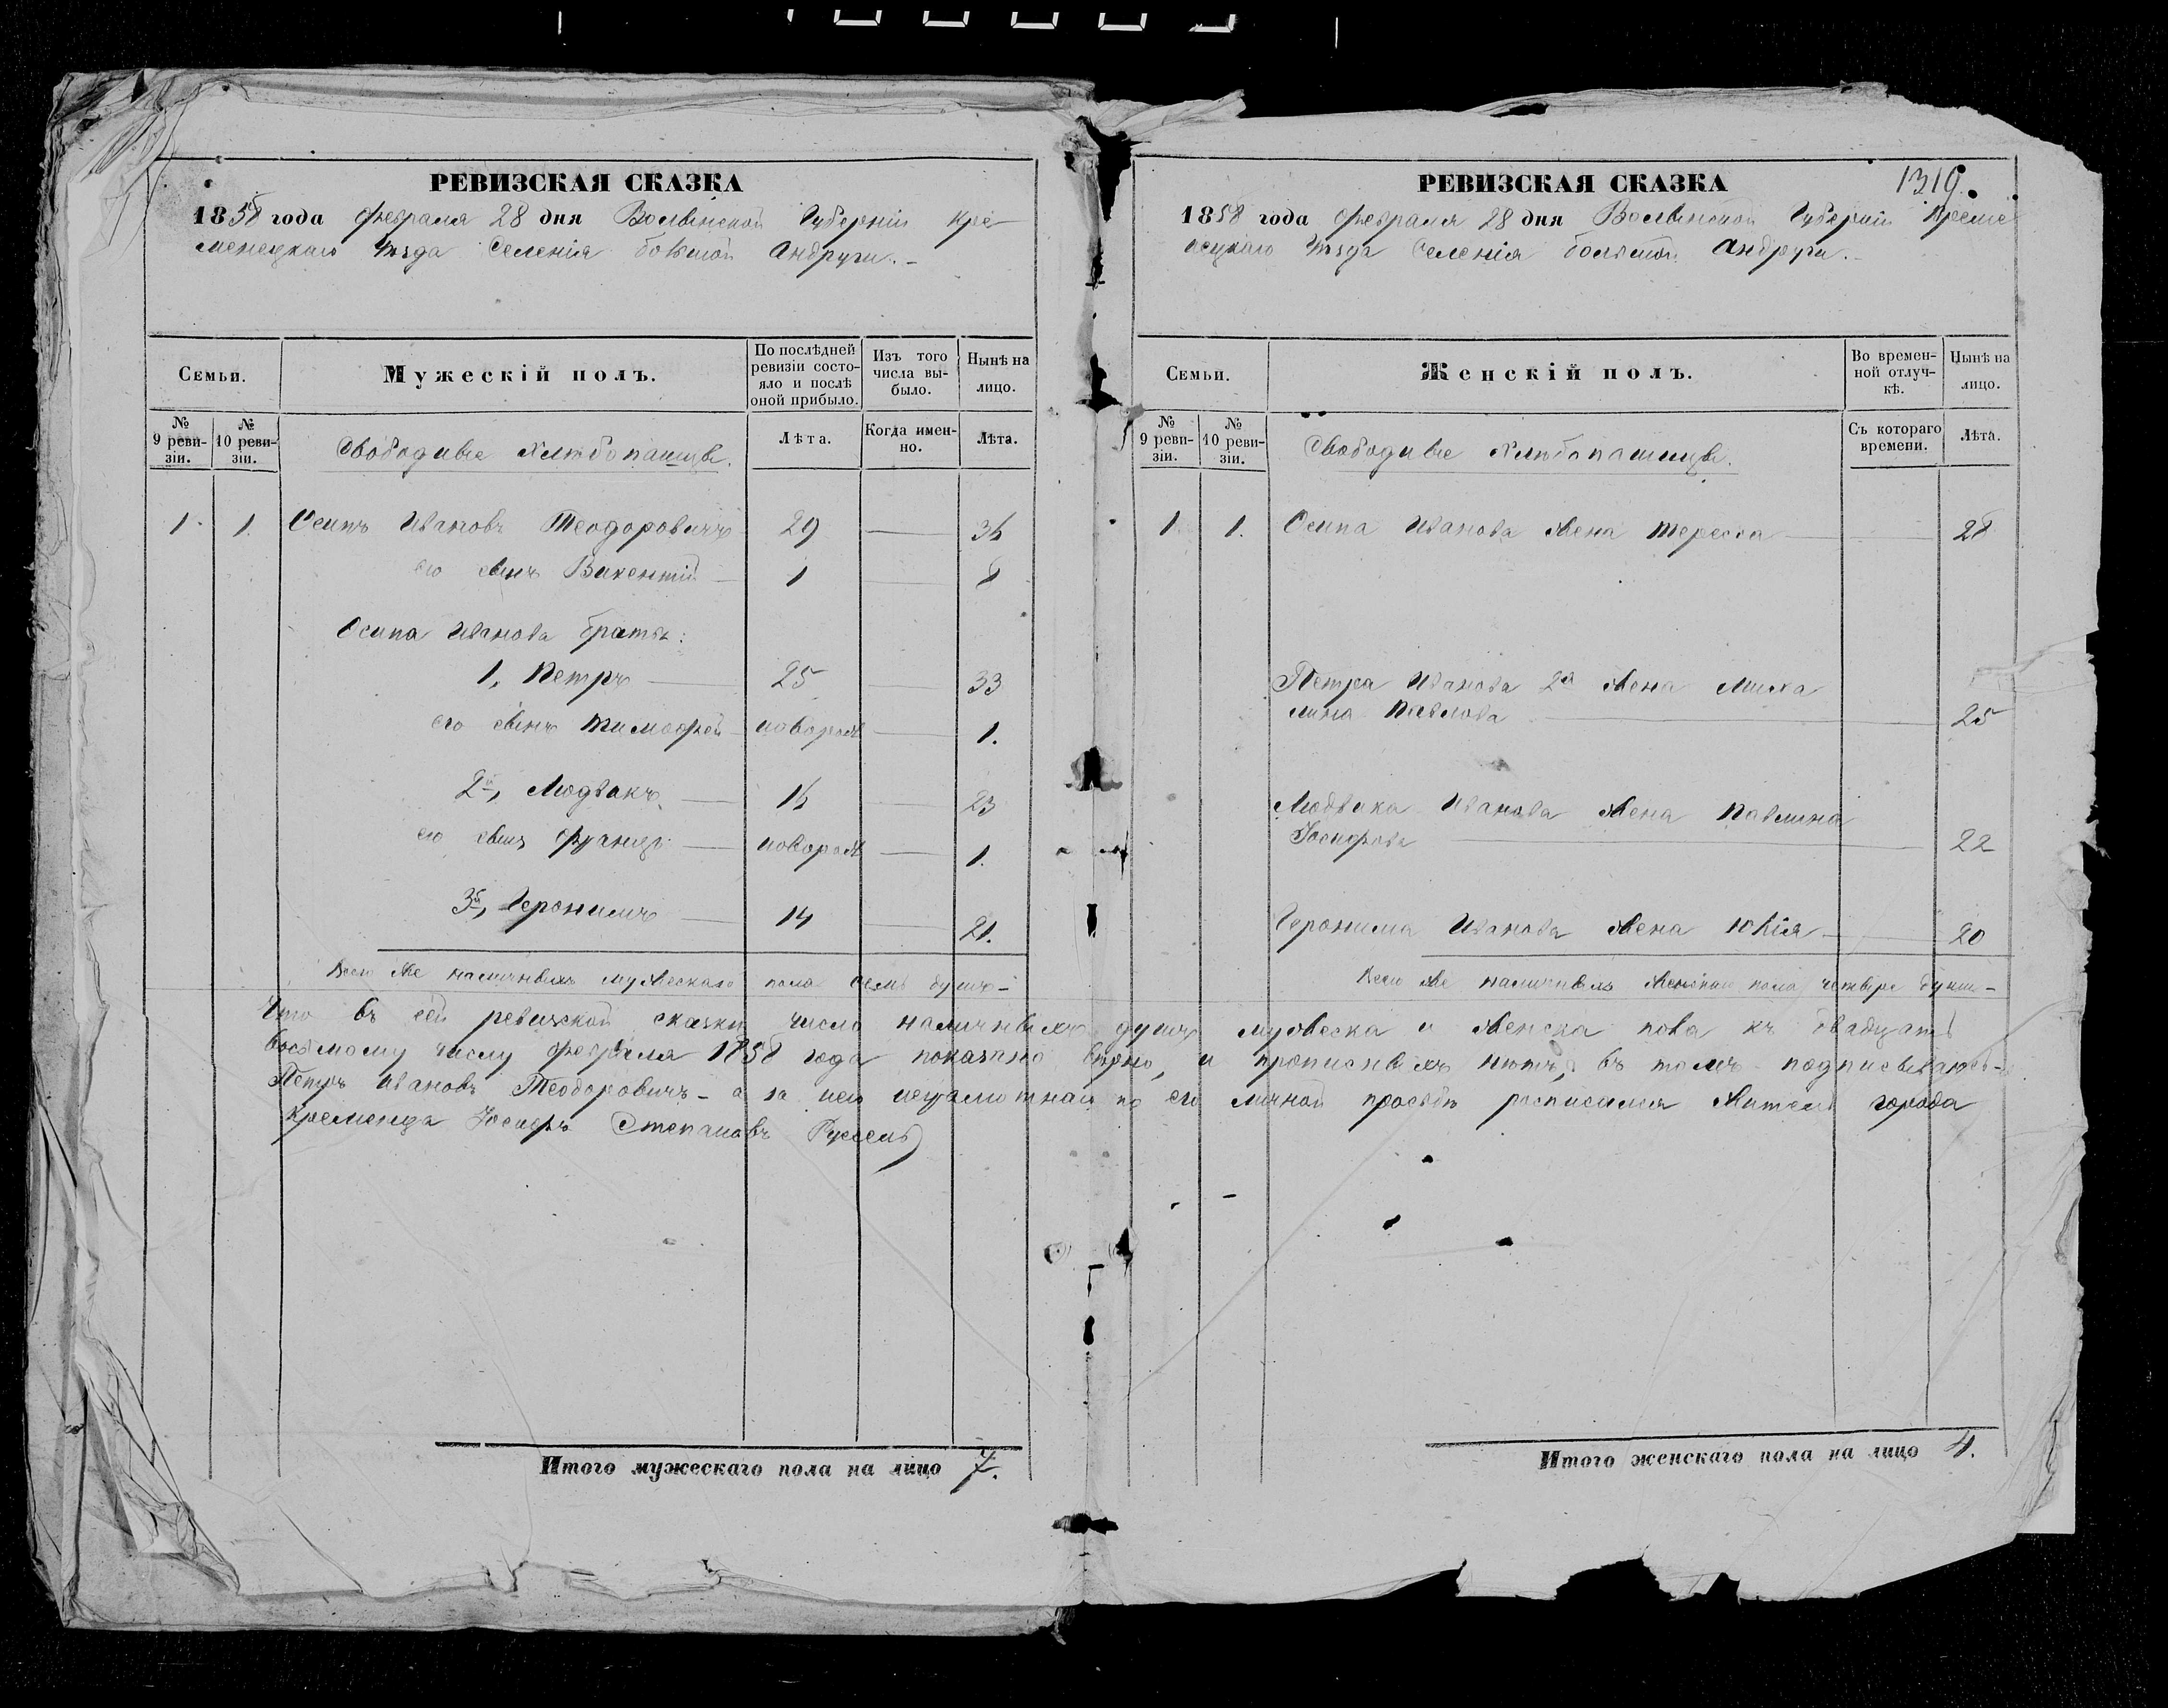 РЕВИЗСКАЯ СКАЗКА
1858 года февраля 28 дня Волынской Губерніи Кре-
менецкаго Уѣзда Селенія большой Андруги.-
Семьи.
Мужескій полъ.
По послѣдней ревизіи состо-
яло и послѣ оной прибыло.
Изъ того числа вы-
было.
Нынѣ на лицо.
№ 9 реви-
зіи.
№ 10 реви-
зіи.
Свободные Хлѣбопашцы.
Лѣта.
Когда имен-
но.
Лѣта.
1. 1. Осипъ Ивановъ Теодоровичъ 29 — 36
его сынъ Викентій — 1 — 8
Осипа Иванова братья:
1, Петръ — 25 — 33
его сынъ Тимофей — новорож — 1.
2й, Людвикъ — 16 — 23
его сынъ Францъ — новорож — 1.
3й, Геронимъ — 14 — 21.
Всего же наличныхъ мужескаго пола семь душъ-
РЕВИЗСКАЯ СКАЗКА
1319.
1858 года февраля 28 дня Волынской Губерніи Креме
нецкаго Уѣзда Селенія большой Андруги.-
Семьи.
Женскій полъ.
Во времен-
ной отлуч-
кѣ.
Нынѣ на лицо.
№ 9 реви-
зіи.
№ 10 реви-
зіи.
Свободные Хлѣбопашцы.
Съ котораго времени.
Лѣта.
1. 1. Осипа Иванова жена Тересса — 28
Петра Иванова 2я жена Миха
лина Павлова — 25
Людвика Иванова жена Павлина
Іосифова — 22
Геронима Иванова жена Юлія — 20
Всего же наличныхъ женскаго пола четыре души-
Что въ сей ревизской сказки число наличныхъ душъ мужеска и женска пола къ двадцать
восьмому числу февраля 1858 года показано вѣрно, и прописныхъ нѣтъ, въ томъ подписываюсь-
Петръ Ивановъ Теодоровичъ - а за него неграмотнаго по его личной просьбѣ росписался житель города
Кременца Іосифъ Степановъ
Итого мужескаго пола на лицо 7.
Итого женскаго пола на лицо 4.